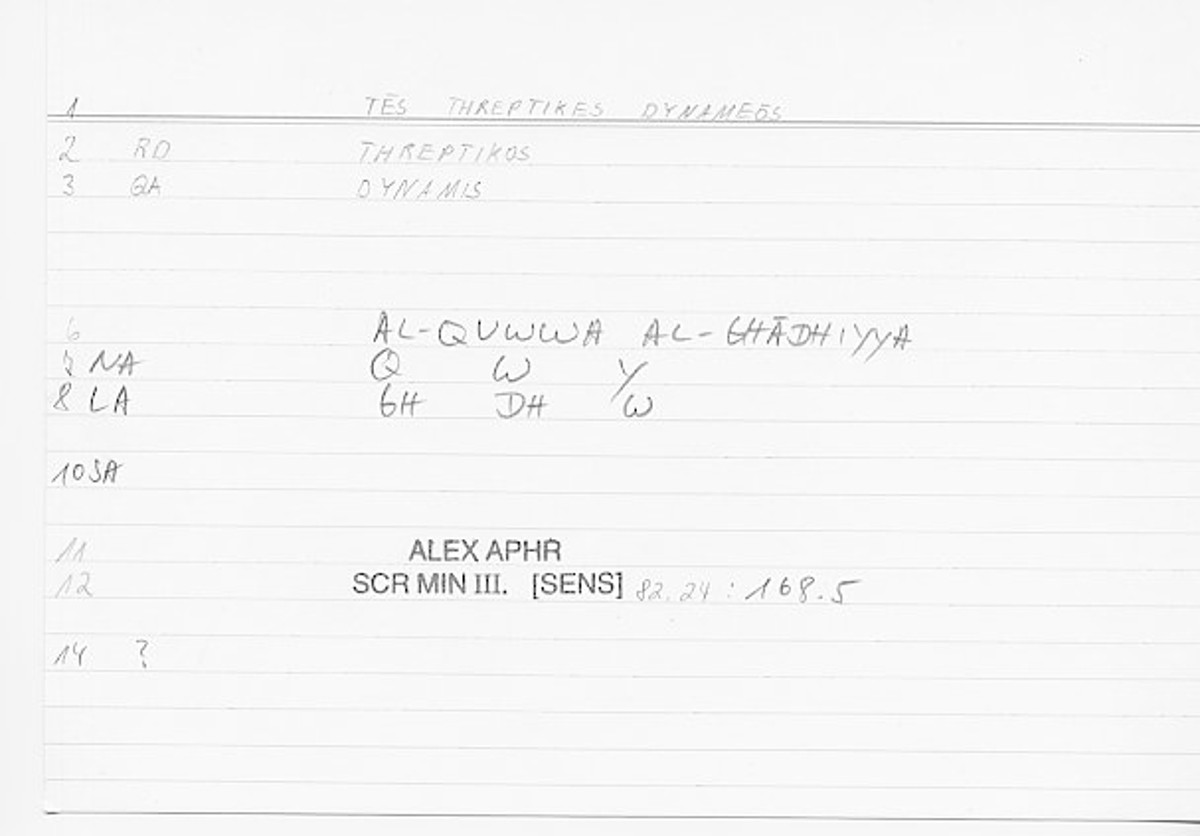 1 TĒS THREPTIKES DYNAMEŌS
2 RD THREPTIKOS
3 QA DYNAMIS
6 AL-QUWWA AL-GHĀDHIYYA
7 NA Q W Y
8 LA GH DH / W
10 SA
11 ALEX APHR
12 SCR MIN III. [SENS] 82.24 : 168.5
14 ?